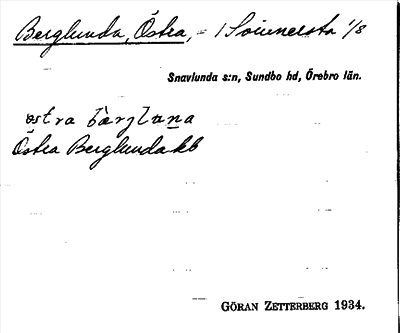 Berglunda, Östra, = 1 Sörunelsta 1/8
Snavlunda s:n, Sundbo hd, Örebro län.
östra bærgluna
Östra Berglunda kb
GÖRAN ZETTERBERG 1934.